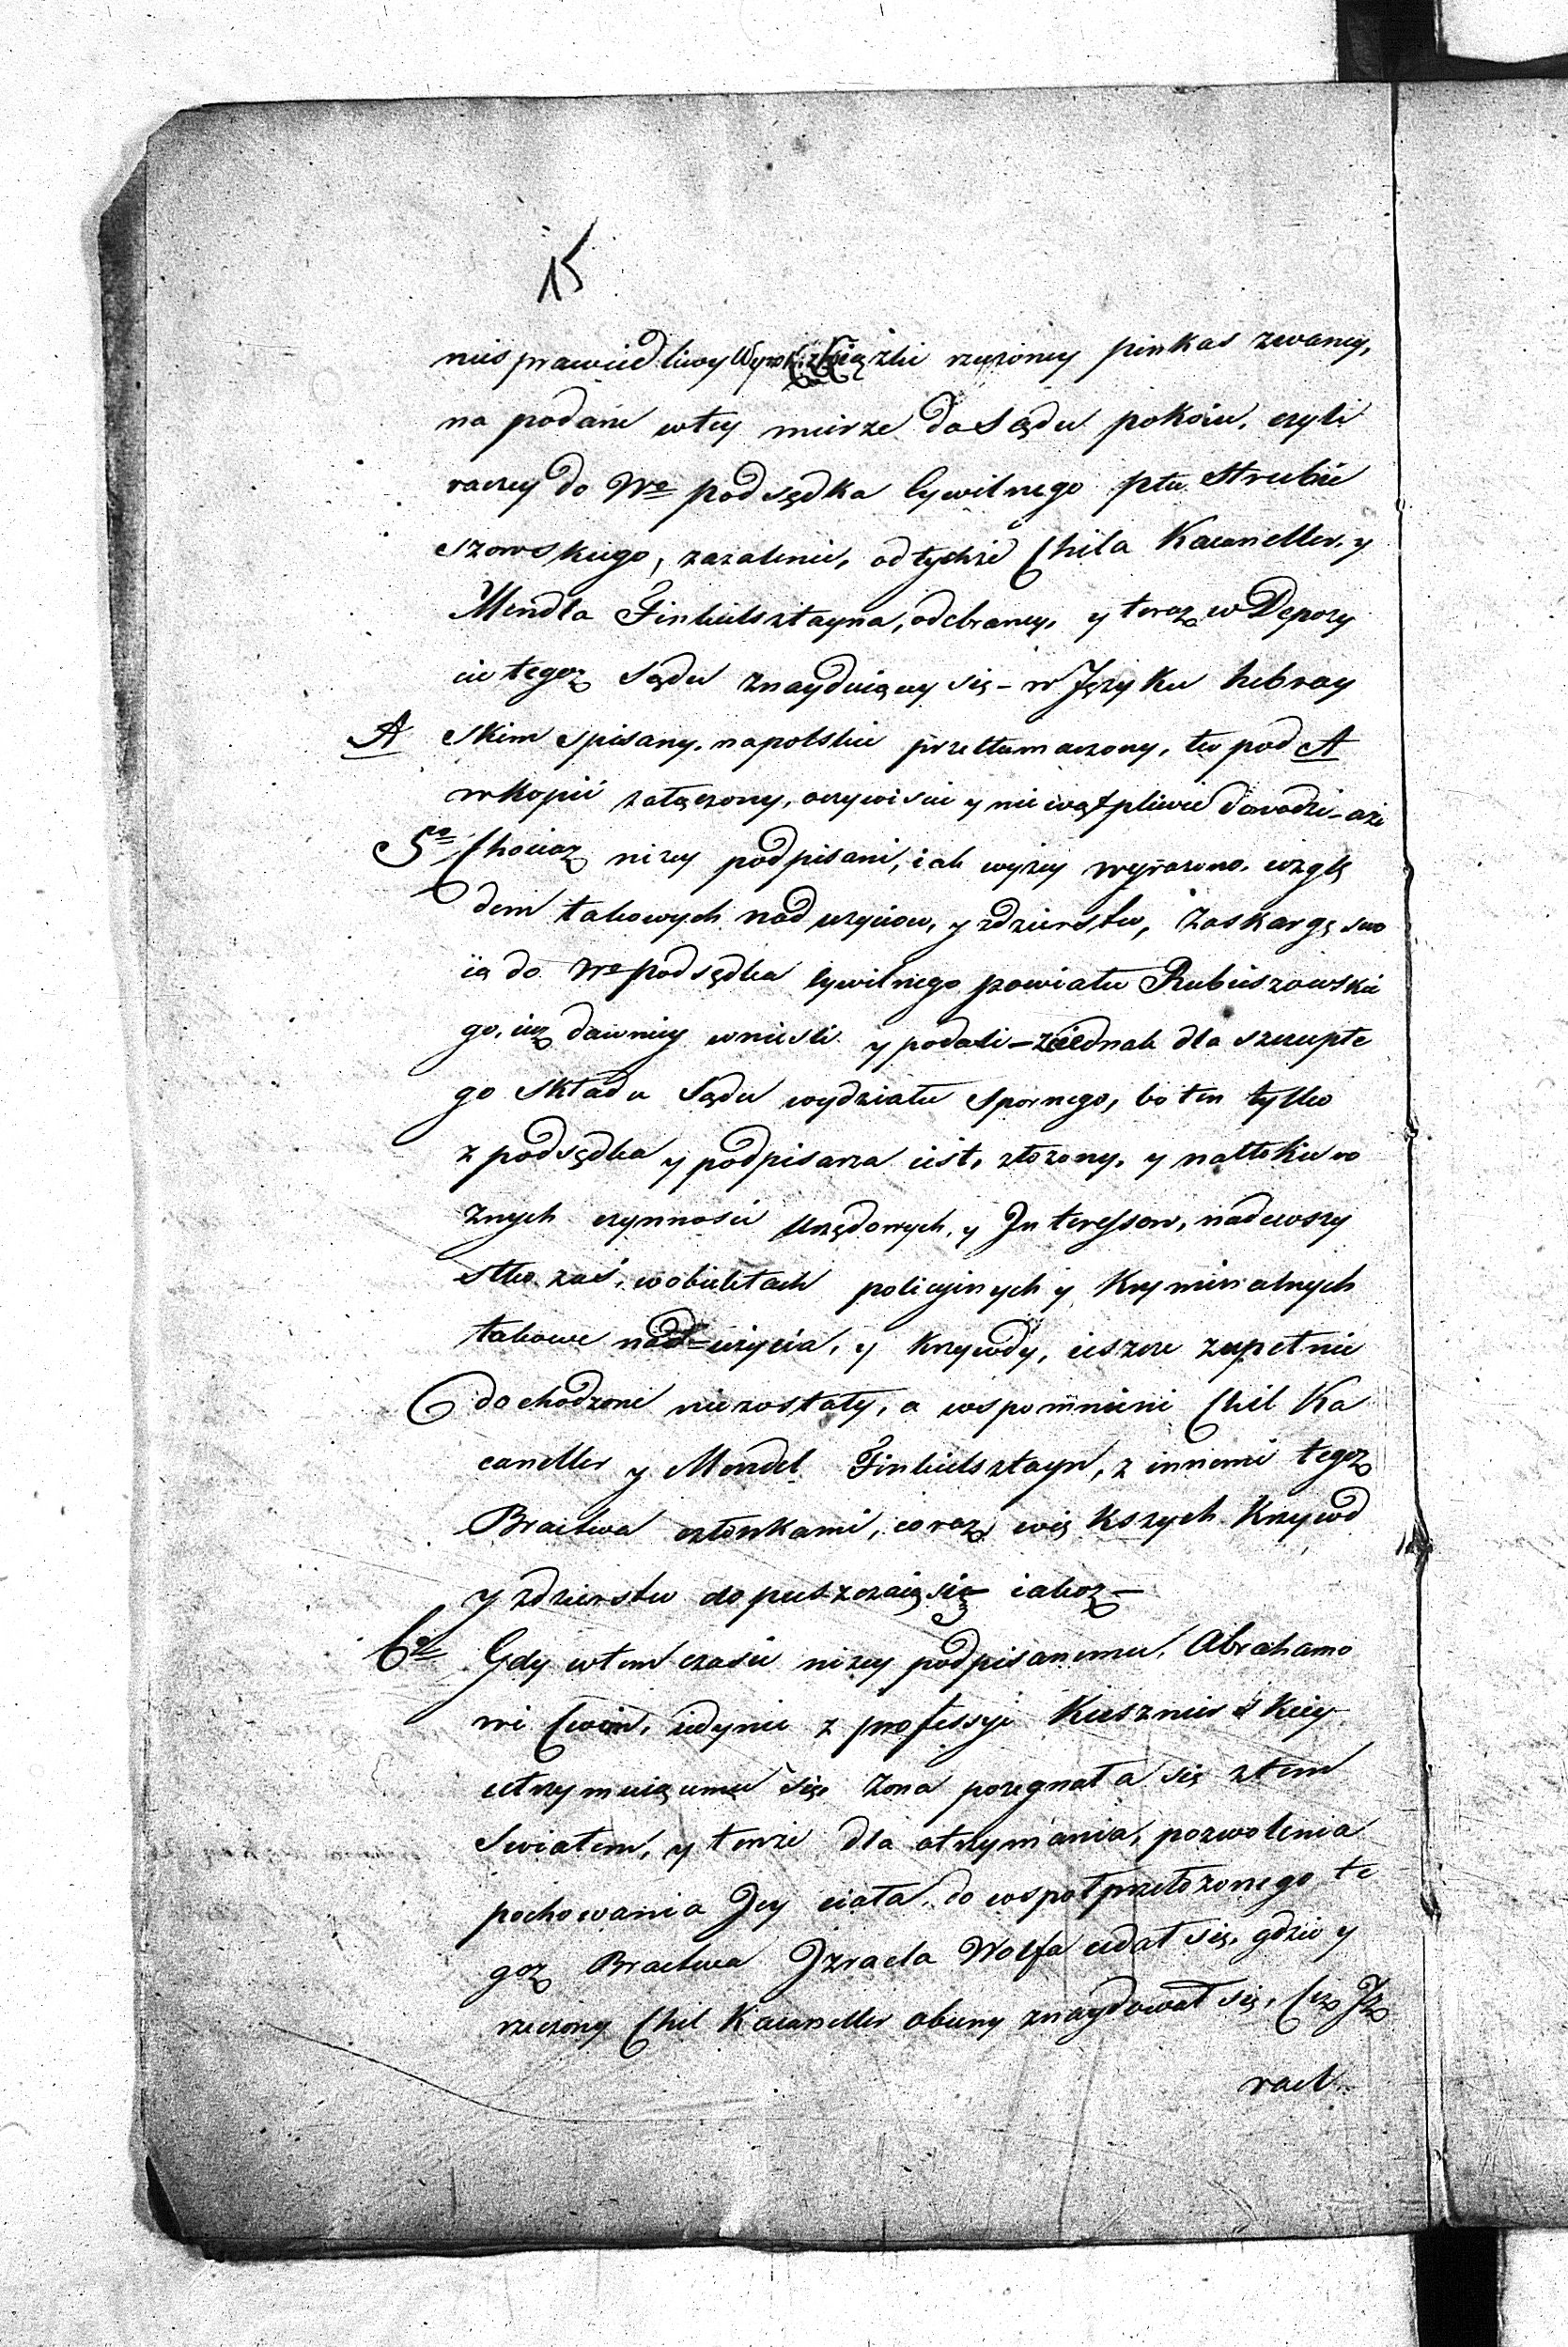 15
niesprawiedliwy Wypis z Książki rzeczoney pinkas zwaney,
na podanie wtey mierze do Sądu pokoiu, czyli
raczey do Wo podsędka Cywilnego ptu Hrubie
szowskiego, zażalenie, od tychże Chila Kacaneller y
Mendla Finkielsztayna, odebraney, y teraz w Depozy
cie tegoż Sądu znayduiący się – w Języku hebray
A skim spisany, napolskie przetłumaczony, tu pod A
w kopii załączony, oczywiście y niewątpliwie dowodzi – aże
5to Chociaż niżey podpisani, iak wyżey wyrażono, wzglę
dem takowych nadużyciow, y zdzierstw, Zaskargę swo
ią do Wo podsędka Cywilnego powiatu Rubieszowskie
go, iuż dawniey wnieśli y podali – Jednak dla szczupłe
go składu Sądu wydziału Spornego, bo ten tylko
z podsędka y podpisarza iest, złożony, y natłoku ro
żnych czynności Urzędowych, y Interessow, nadewszy
stko zaś, w obiektach policyinych y Kryminalnych
takowe nad-użycia, y krzywdy, ieszcze zupełnie
dochodzone niezostały, a wspomnieni Chil Ka
caneller y Mendel Finkielsztayn, z innemi tegoż
Bractwa członkami, coraz większych Krzywd
y zdzierstw dopuszczaią się iakoż –
6to Gdy wtem czasie niżey podpisanemu, Abrahamo
wi Cwin, iedynie z professyi Kuśznierskiey
utrzymuiącemu się, Żona pożegnała się ztem
Światem, y tenże dla otrzymania, pozwolenia
pochowania Jey ciała, do wspołprzełożonego te
goż Bractwa Izraela Wolfa udał się, gdzie y
rzeczony Chil Kacaneller obecny znaydował się, Cóż Iz
rael